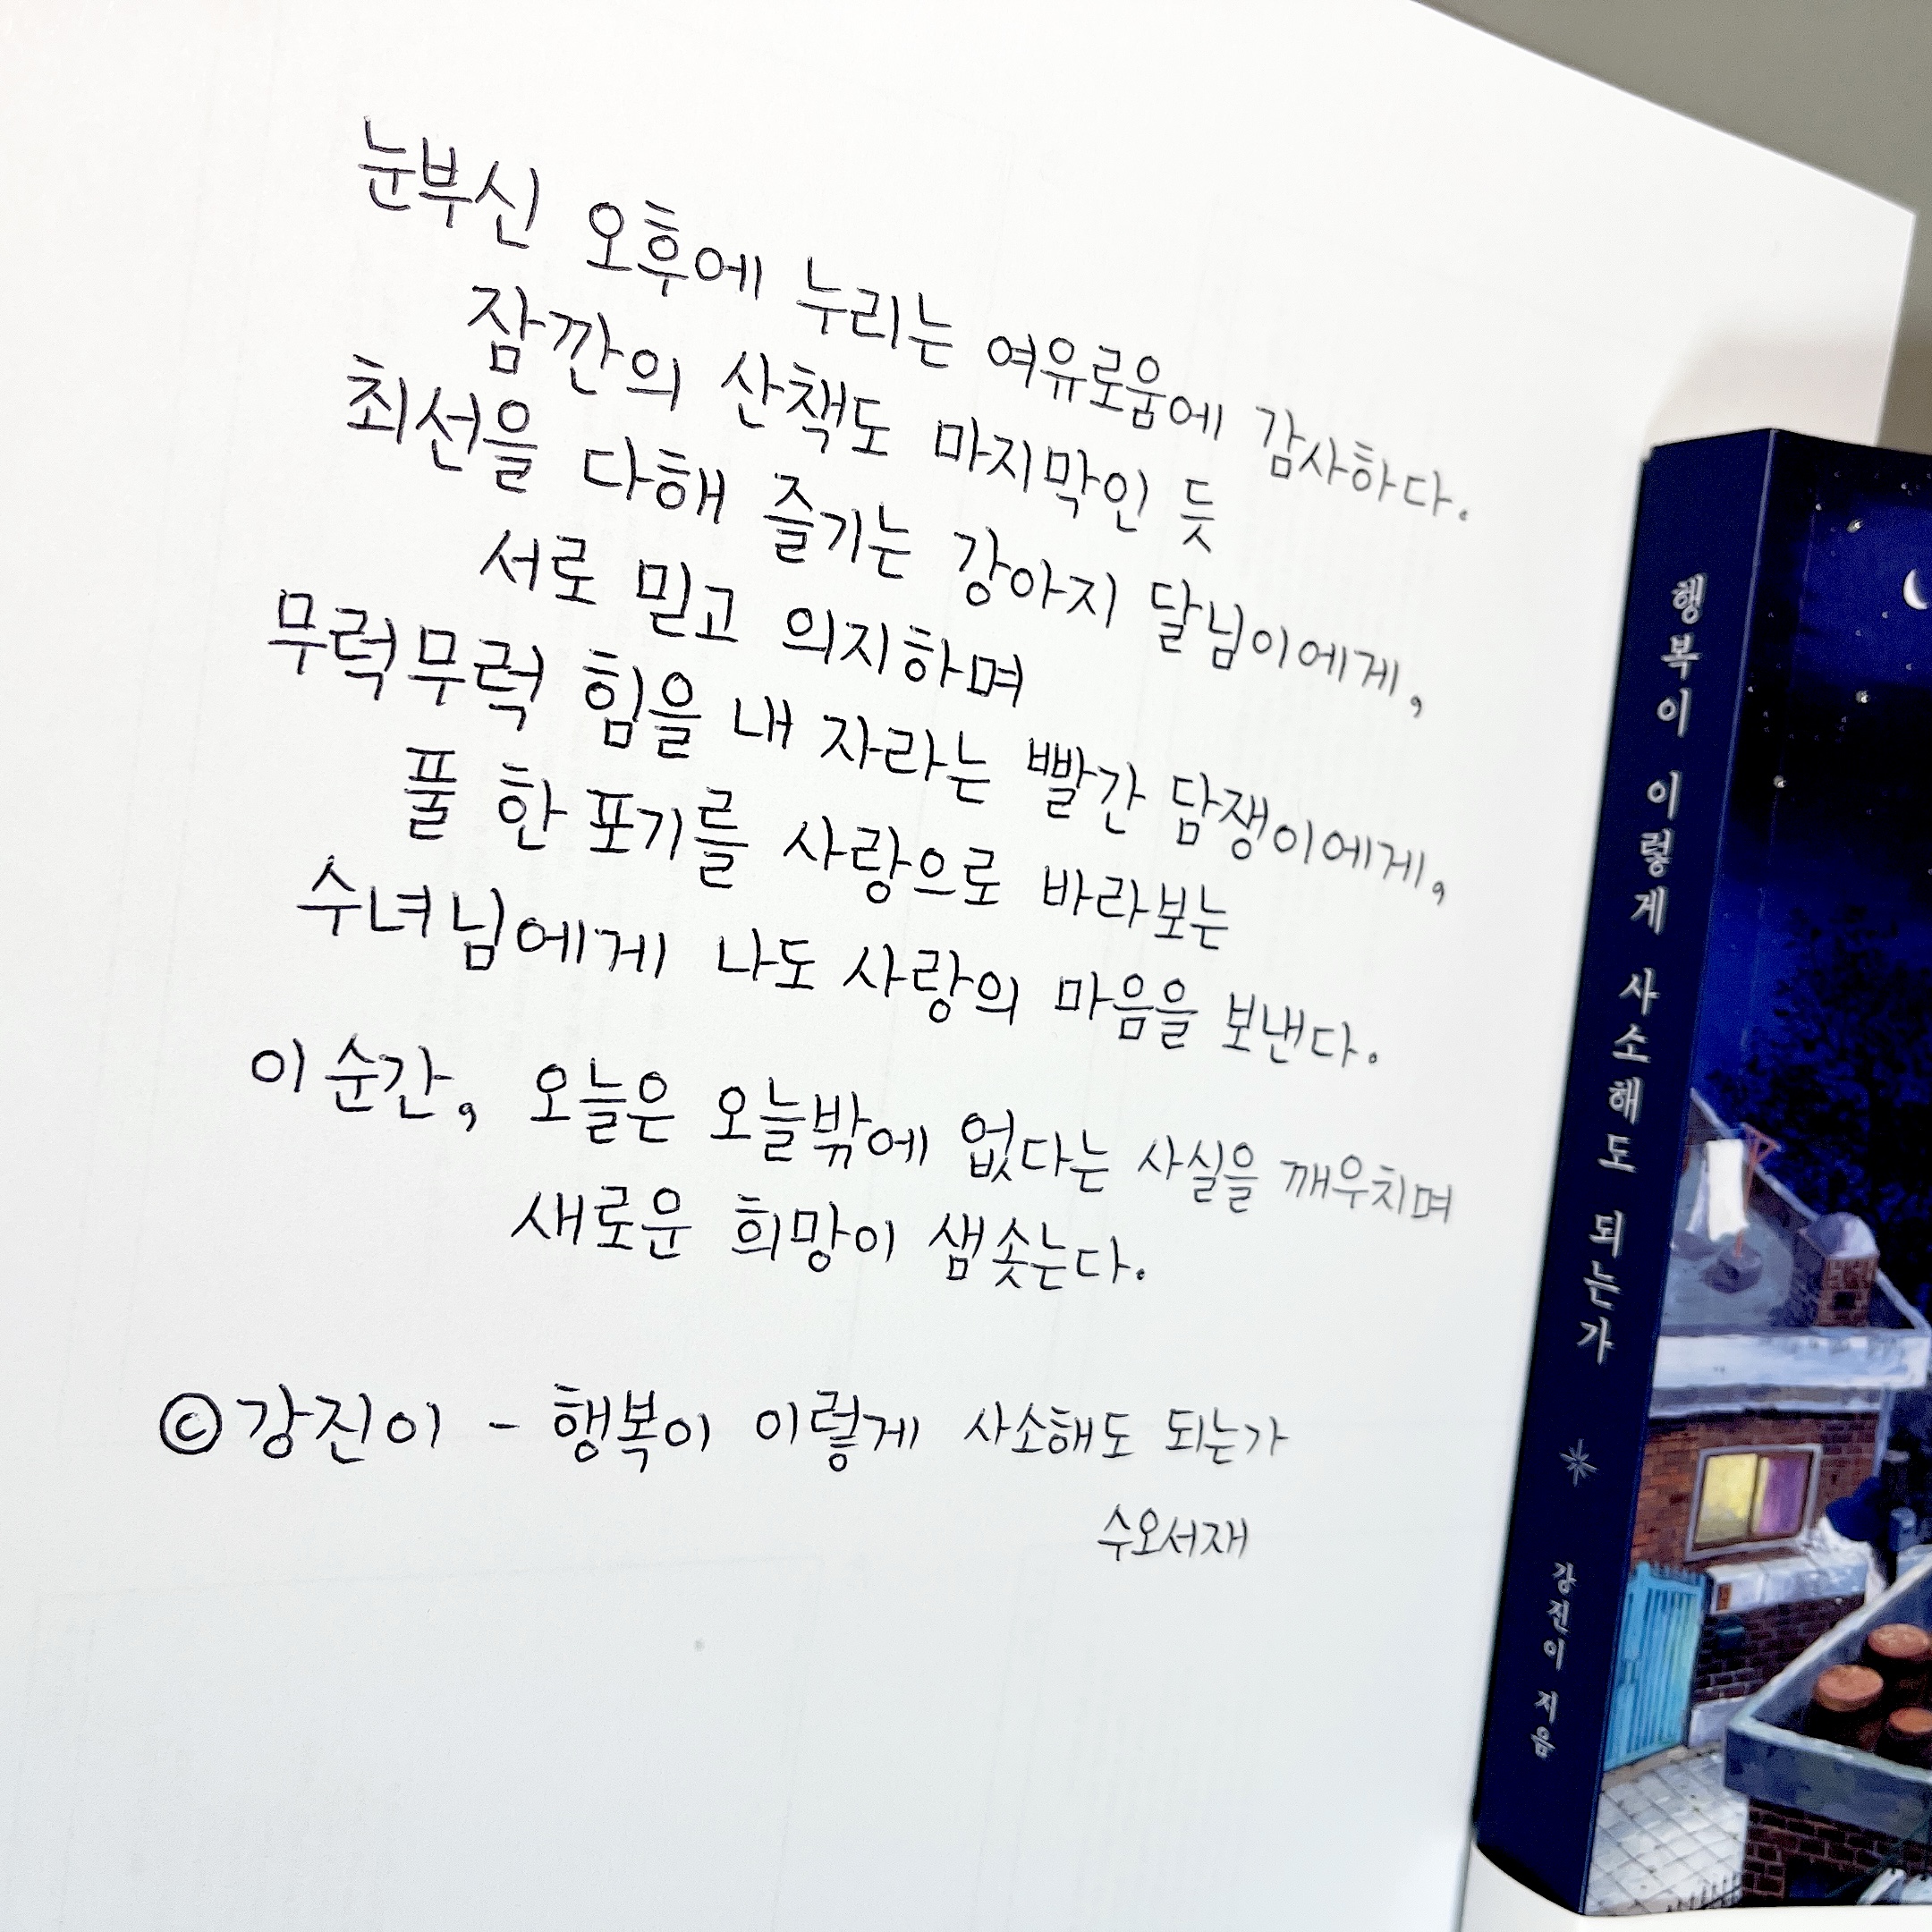 눈부신 오후에 누리는 여유로움에 감사하다.
잠깐의 산책도 마지막인 듯
최선을 다해 즐기는 강아지 달님이에게,
서로 믿고 의지하며
무럭무럭 힘을 내 자라는 빨간 담쟁이에게,
풀 한 포기를 사랑으로 바라보는
수녀님에게 나도 사랑의 마음을 보낸다.
이 순간, 오늘은 오늘밖에 없다는 사실을 깨우치며
새로운 희망이 샘솟는다.
©강진이 - 행복이 이렇게 사소해도 되는가
수오서재
행복이 이렇게 사소해도 되는가 강진이 지음